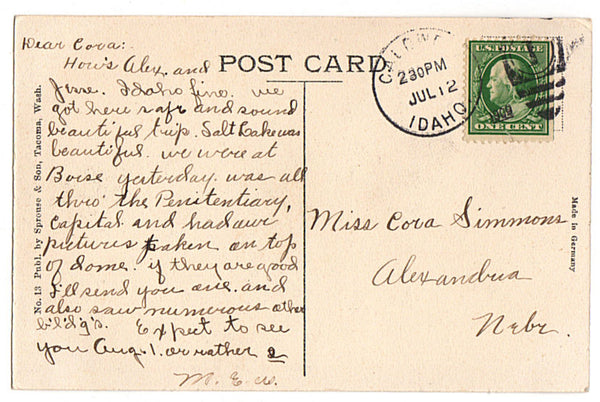 Dear Cora:
How's Alex. and
Jene. Idaho fine. we
got here safe and sound
beautiful trip. Salt Lake was
beautiful. we were at
Boise yesterday. was all
thro' the Penitentiary,
Capital and had our
pictures taken on top
of dome. if they are good
I'll send you one. and
also saw numerous other
b'ld'g's. Expect to see
you Aug. 1. or rather 2
M. E. W.
No. 13 Publ. by Sprouse & Son, Tacoma, Wash.
POST CARD
2 30 PM
JUL 12
IDAHO
1909
U.S. POSTAGE
ONE CENT
Miss Cora Simmons
Alexandria
Nebr.
Made in Germany